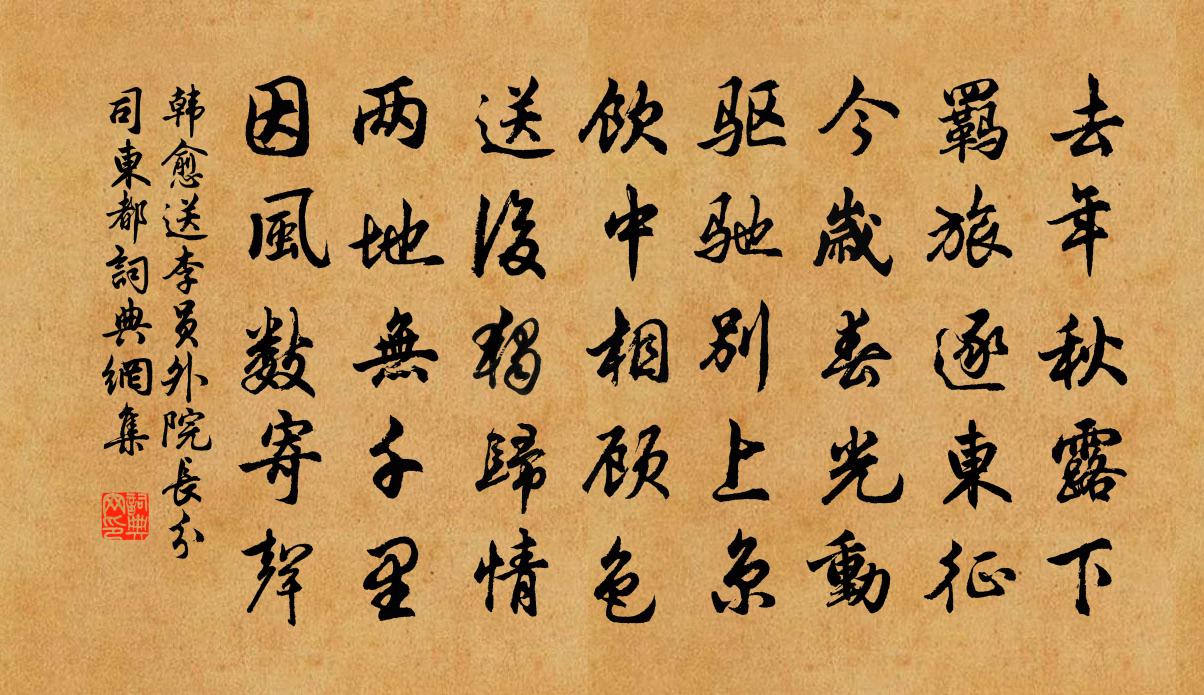 去年秋露下
羁旅逐東征
今歲春光動
驱驰别上京
飲中相顾色
送後獨歸情
两地無千里
因風數寄聲
韩愈送李员外院長分
司東都詞典網集
詞典網印